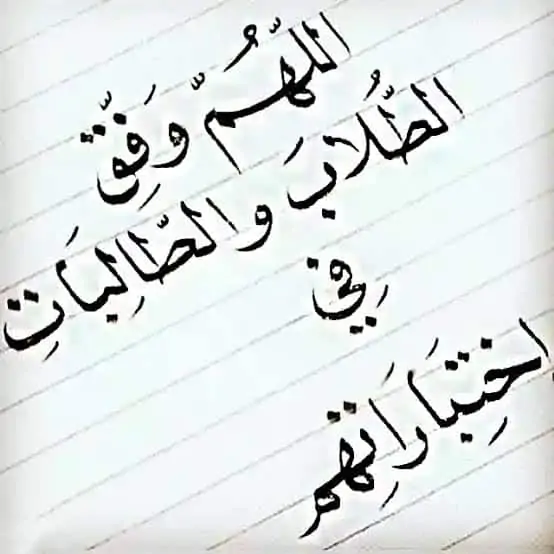 اللّهُمّ وَفِّقْ
الطُّلابَ والطّالِبَاتِ
فِي
اختِبَارَاتِهم